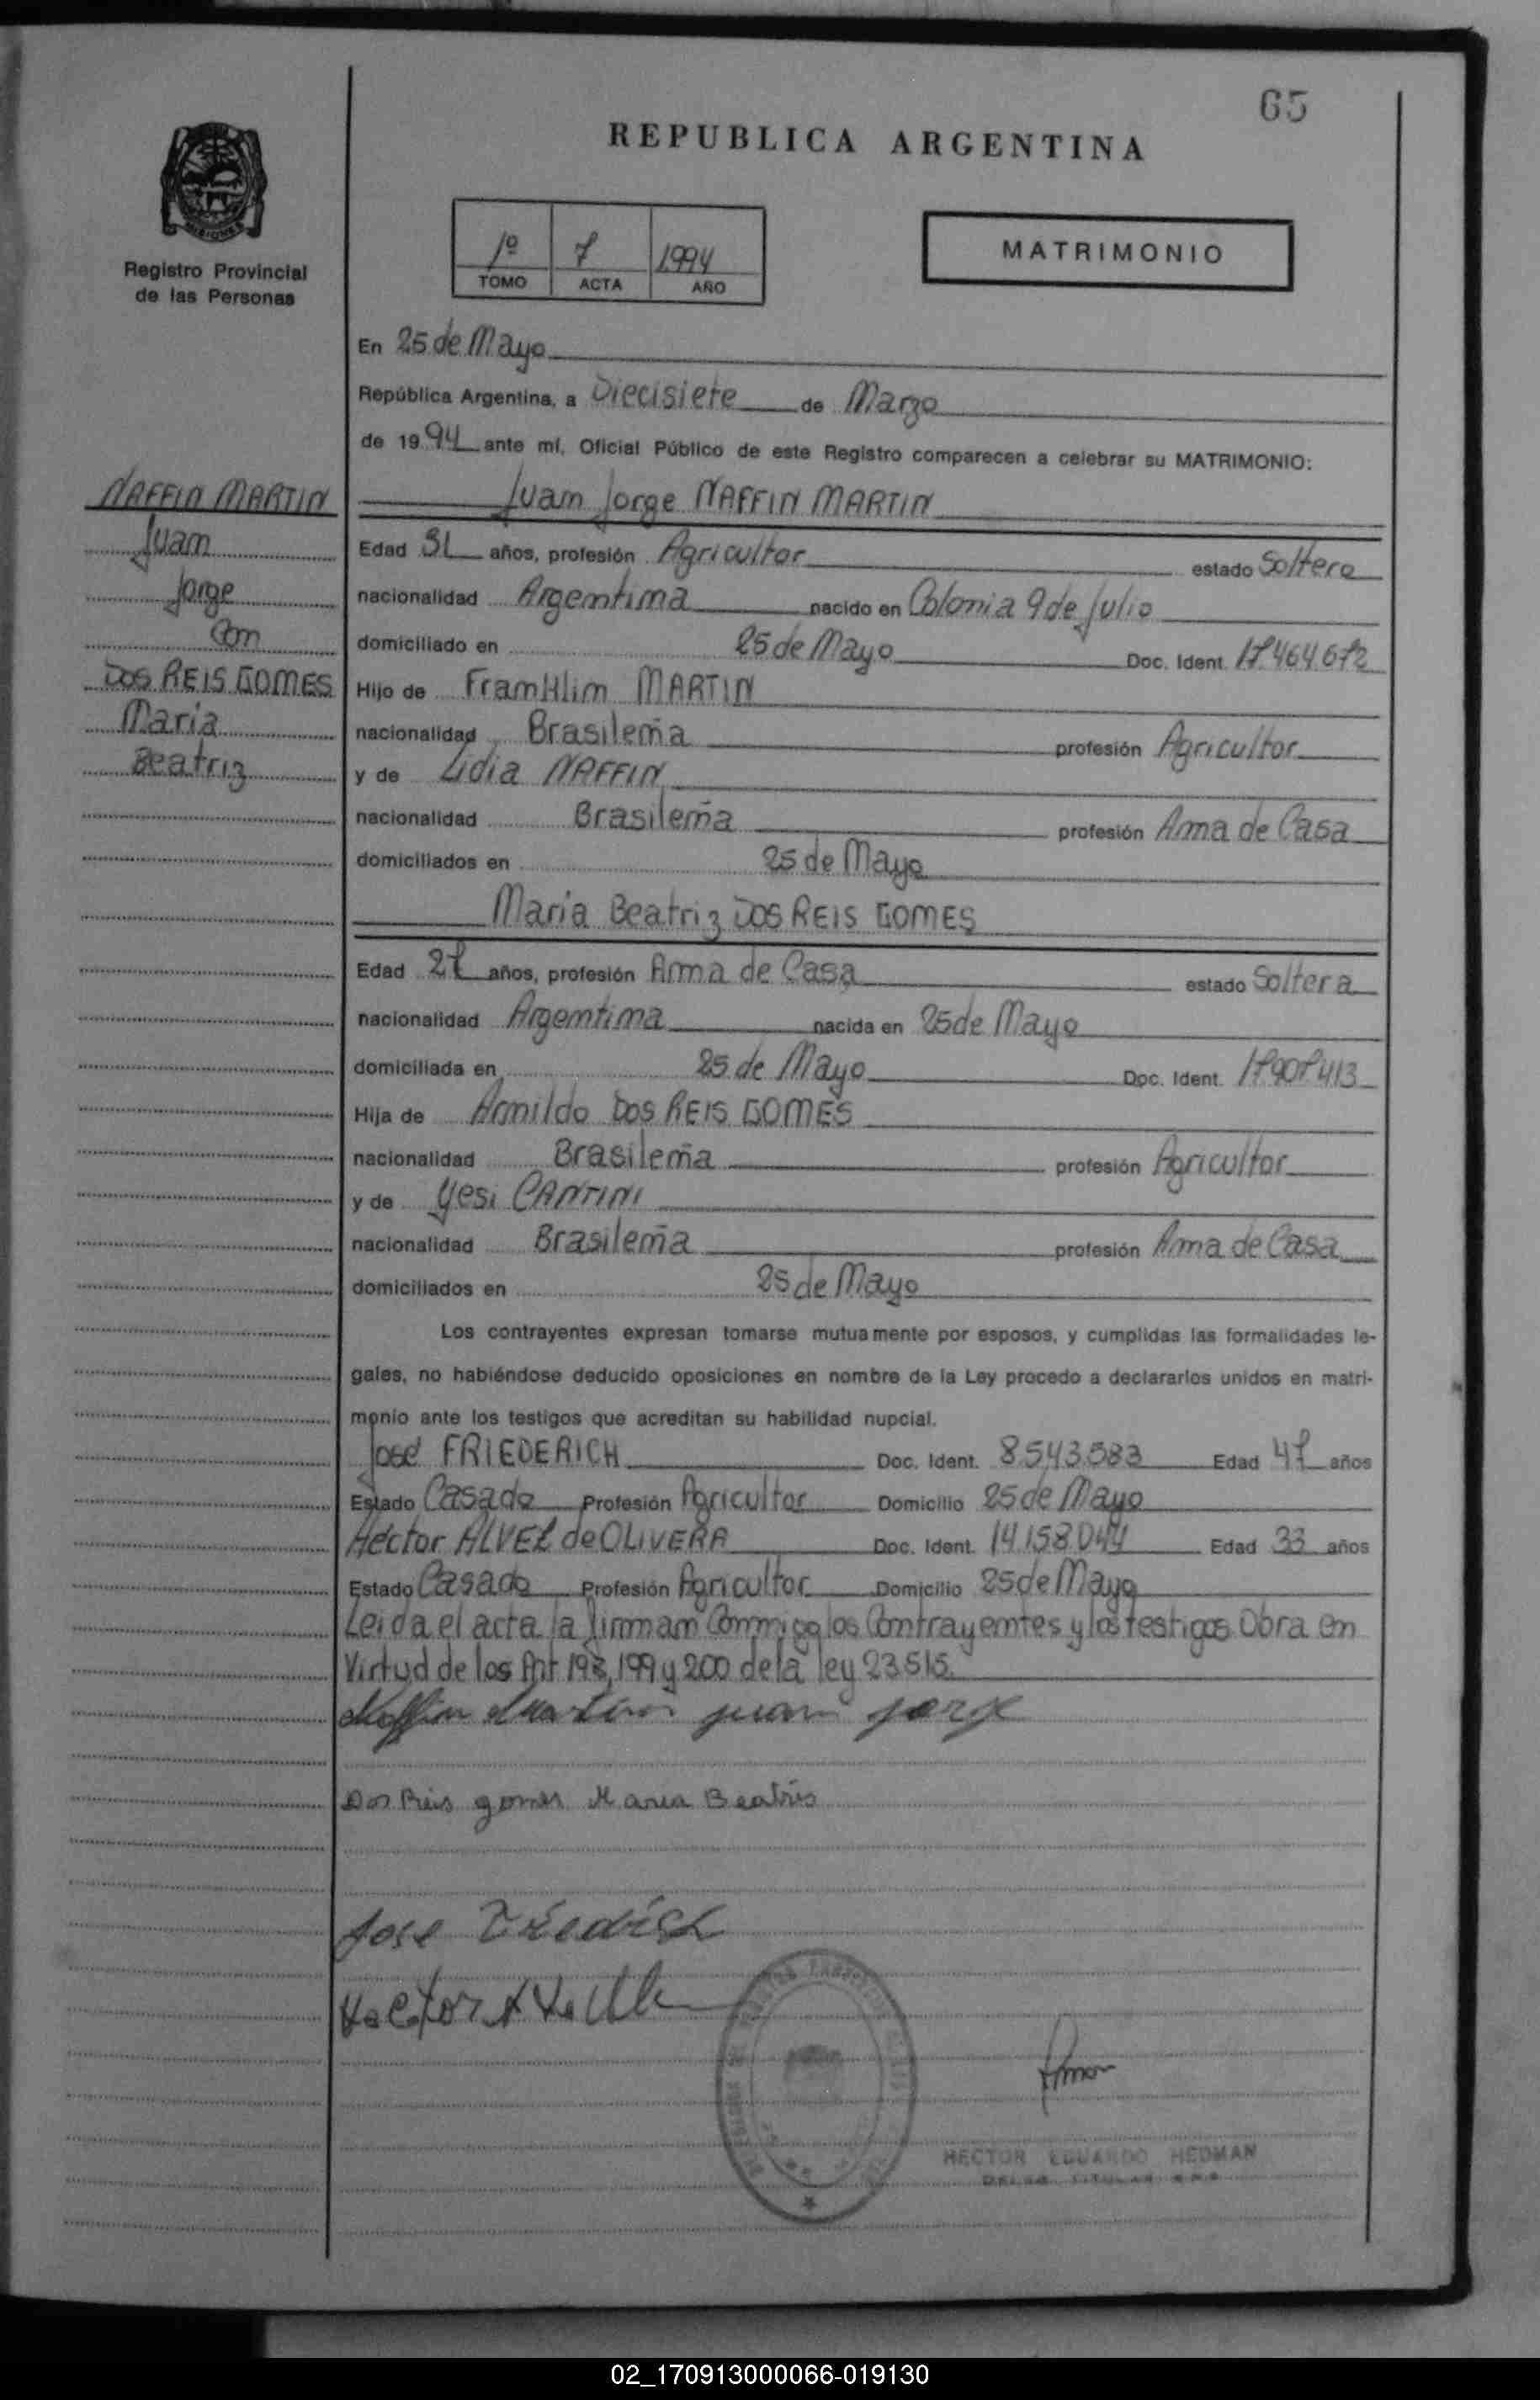 65
REPUBLICA ARGENTINA
MISIONES
Registro Provincial
de las Personas
1º 7 1994
TOMO ACTA AÑO
MATRIMONIO
En 25 de Mayo
República Argentina, a Diecisiete de Marzo
de 1994 ante mí, Oficial Público de este Registro comparecen a celebrar su MATRIMONIO:
NAFFIN MARTIN
Juan
Jorge
Con
DOS REIS GOMES
Maria
Beatriz
Juan Jorge NAFFIN MARTIN
Edad 31 años, profesión Agricultor estado Soltero
nacionalidad Argentina nacido en Colonia 9 de Julio
domiciliado en 25 de Mayo Doc. Ident. 17.464.672
Hijo de Franklim MARTIN
nacionalidad Brasileña profesión Agricultor
y de Lidia NAFFIN
nacionalidad Brasileña profesión Ama de Casa
domiciliados en 25 de Mayo
Maria Beatriz DOS REIS GOMES
Edad 27 años, profesión Ama de Casa estado Soltera
nacionalidad Argentina nacida en 25 de Mayo
domiciliada en 25 de Mayo Doc. Ident. 17.907.413
Hija de Arnildo DOS REIS GOMES
nacionalidad Brasileña profesión Agricultor
y de Yesi CANTINI
nacionalidad Brasileña profesión Ama de Casa
domiciliados en 25 de Mayo
Los contrayentes expresan tomarse mutuamente por esposos, y cumplidas las formalidades le-
gales, no habiéndose deducido oposiciones en nombre de la Ley procedo a declararlos unidos en matri-
monio ante los testigos que acreditan su habilidad nupcial.
José FRIEDERICH Doc. Ident. 8.543.583 Edad 47 años
Estado Casado Profesión Agricultor Domicilio 25 de Mayo
Héctor ALVEZ de OLIVERA Doc. Ident. 14.158.044 Edad 33 años
Estado Casado Profesión Agricultor Domicilio 25 de Mayo
Leida el acta la firman Conmigo los Contrayentes y los testigos Obra en
Virtud de los Art. 198, 199 y 200 de la ley 23.515.
Naffin Martin juan jorge
Dos Reis gomes Maria Beatris
Jose
Hector
HECTOR EDUARDO HEDMAN
TITULAR
02_170913000066-019130